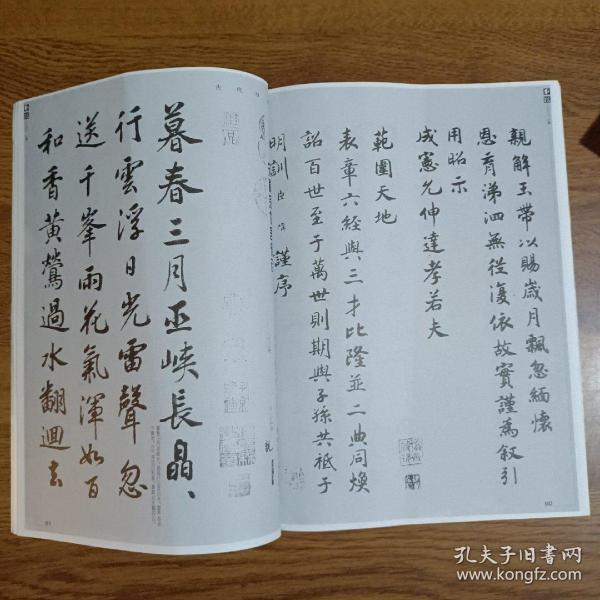 親解玉帶以賜歲月飄忽緬懷
恩育涕泗無從復依故實謹為叙引
用昭示
成憲允伸達孝若夫
範圍天地
表章六經與三才比隆並二典同煥
詔百世至于萬世則期與子孫共祇于
謹序
暮春三月巫峽長晶、
行雲浮日光雷聲忽
送千峯雨花氣渾如百
和香黃鶯過水翻迴去
孔夫子旧书网
www.kongfz.com